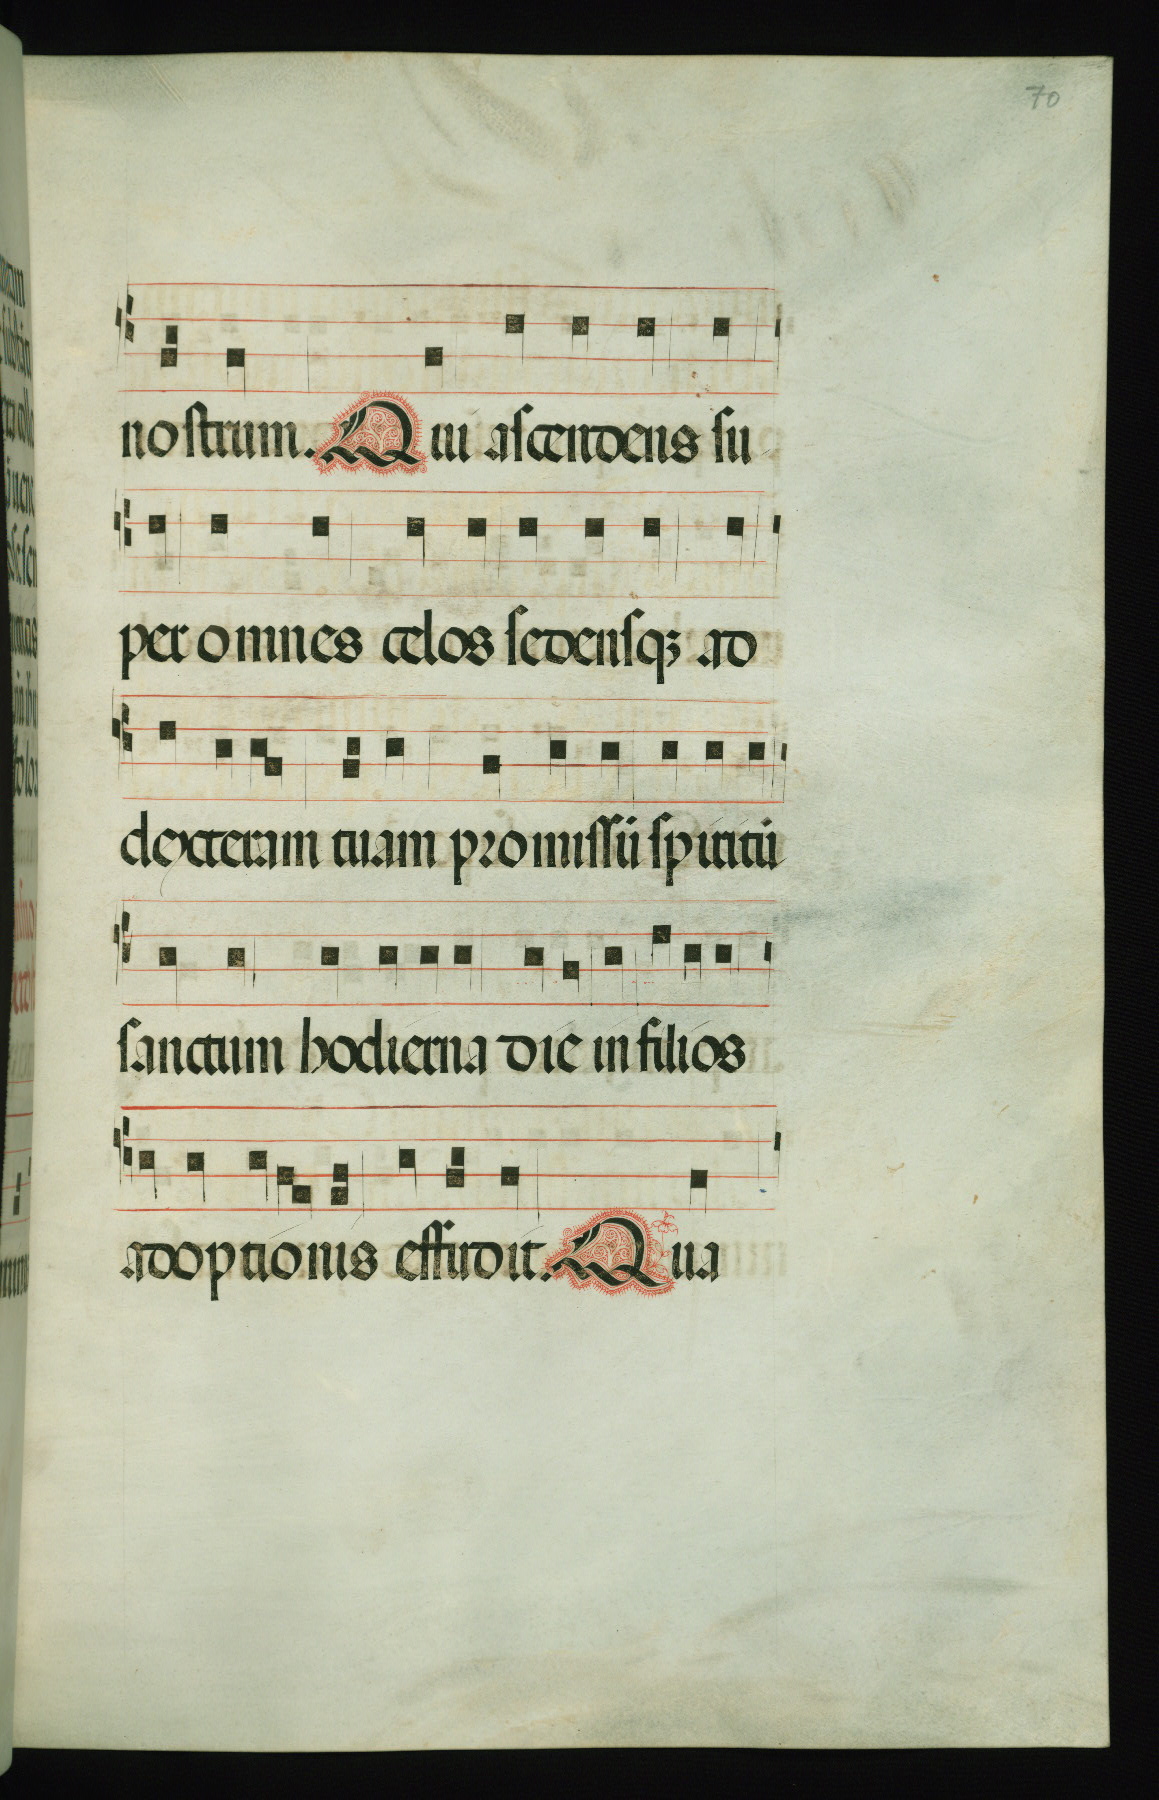 70
nostrum. Qui ascendens su
per omnes celos sedensqꝫ ad
dexteram tuam promissū spiritū
sanctum hodierna die in filios
adoptionis effudit. Qua